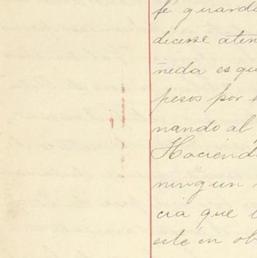 fé guarda
decerse aten
ñeda es qu
pesos por
nando al
Hacienda
ningun
cia que
site en ob